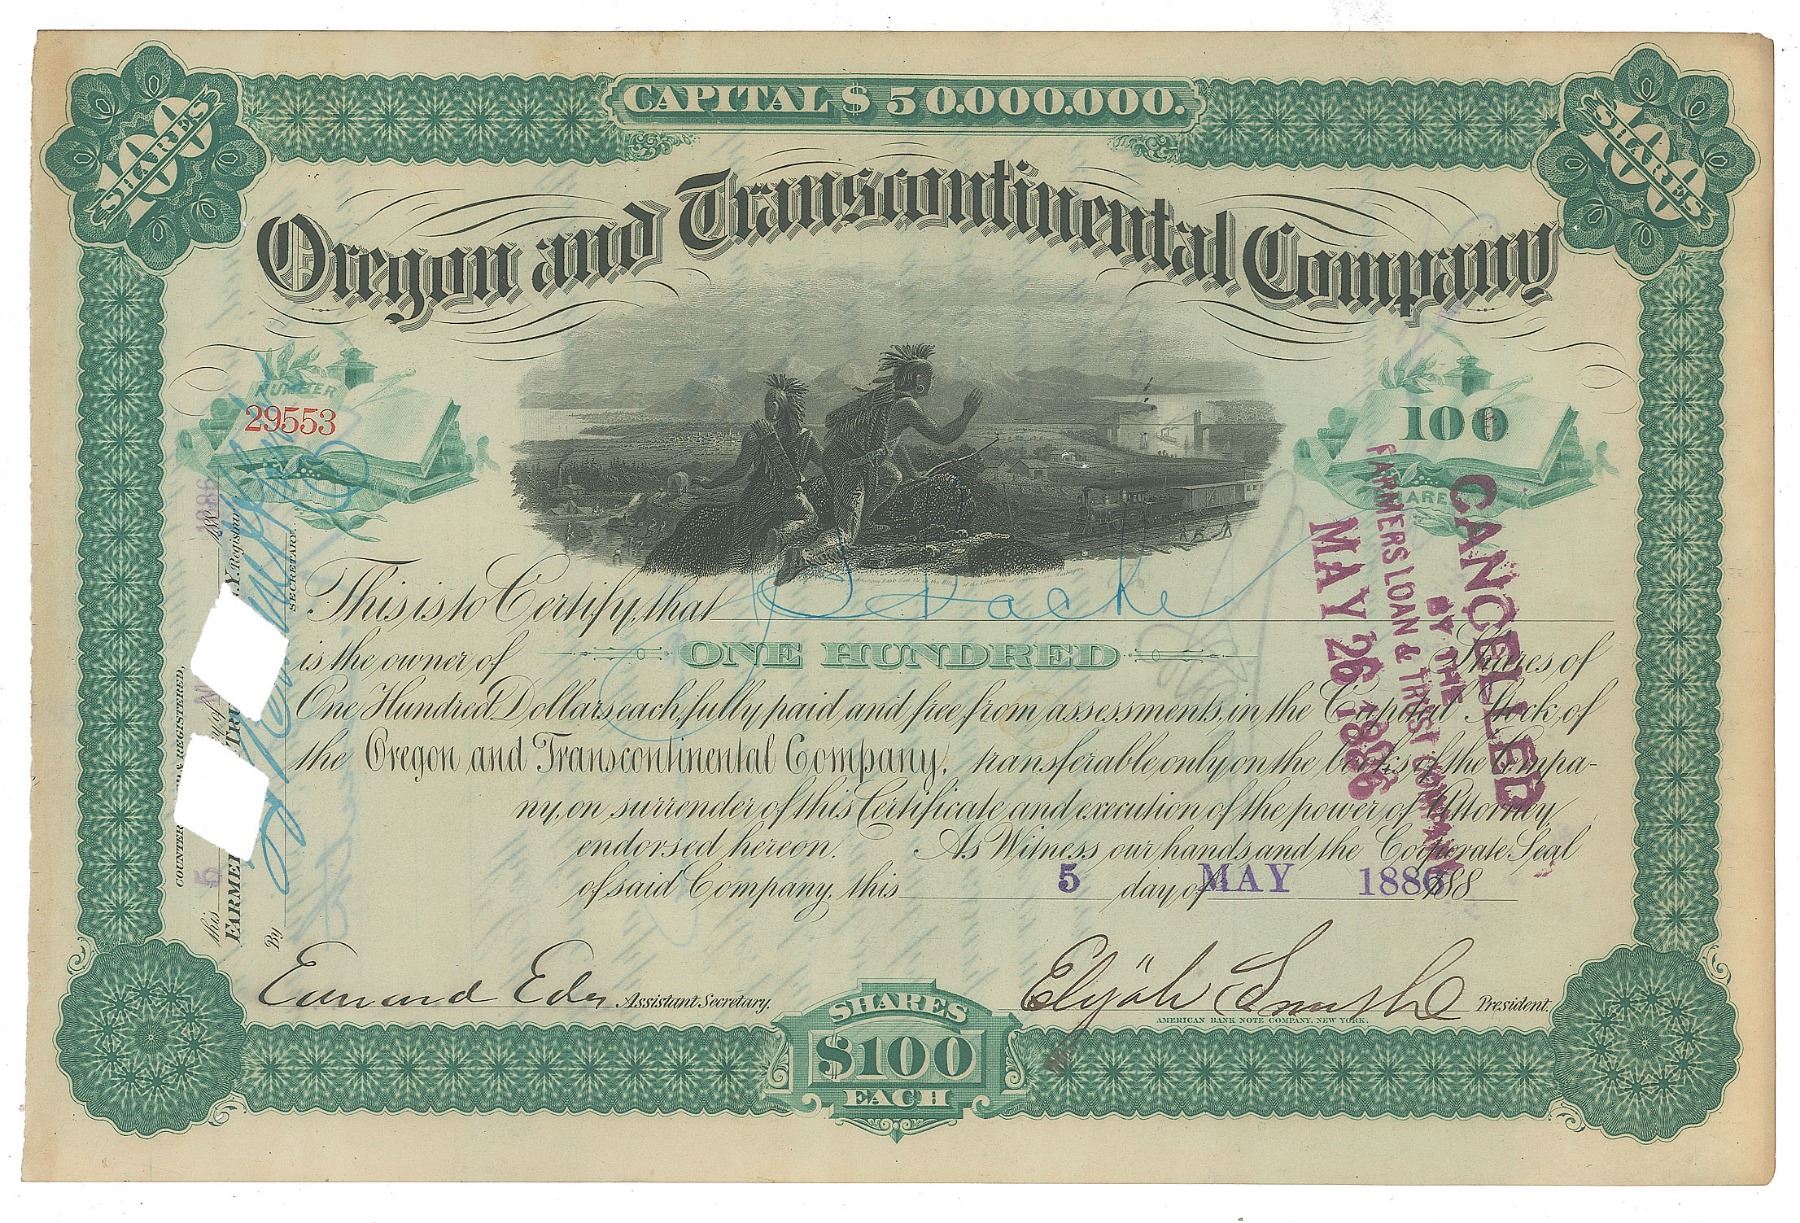 CAPITAL $50.000.000.
100 SHARES
100 SHARES
Oregon and Transcontinental Company
NUMBER
29553
100
SHARES
This is to Certify, that
is the owner of ONE HUNDRED Shares of
One Hundred Dollars each, fully paid and free from assessments, in the Capital Stock, of
the Oregon and Transcontinental Company, transferable only on the books of the Compa-
ny, on surrender of this Certificate and execution of the power of Attorney
endorsed hereon. As Witness, our hands and the Corporate Seal
of said Company, this 5 day of MAY 1886 188
Edward Assistant Secretary.
Elijah Smith President.
AMERICAN BANK NOTE COMPANY, NEW YORK.
SHARES
$100
EACH
CANCELLED
BY THE
FARMERS LOAN & TRUST COMPANY
MAY 26 1886
COUNTER & REGISTERED,
this 5 188 1886
FARMER TRU Y. Registrar
By SECRETARY.